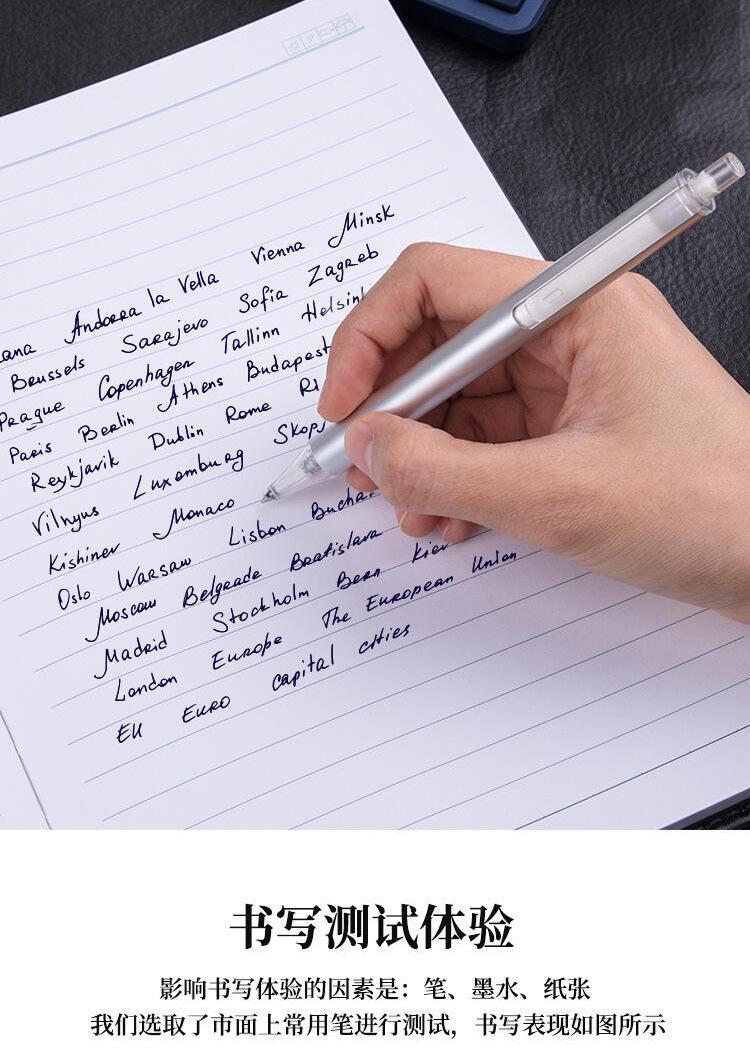 Andorra la Vella Vienna Minsk
Brussels Sarajevo Sofia Zagreb
Prague Copenhagen Tallinn
Paris Berlin Athens Budapest
Reykjavik Dublin Rome
Vilnyus Luxemburg
Kishinev Monaco
Oslo Warsaw Lisbon
Moscow Belgrade Bratislava
Madrid Stockholm Bern Kiev
London Europe The European Union
EU Euro capital cities
书写测试体验
影响书写体验的因素是：笔、墨水、纸张
我们选取了市面上常用笔进行测试，书写表现如图所示